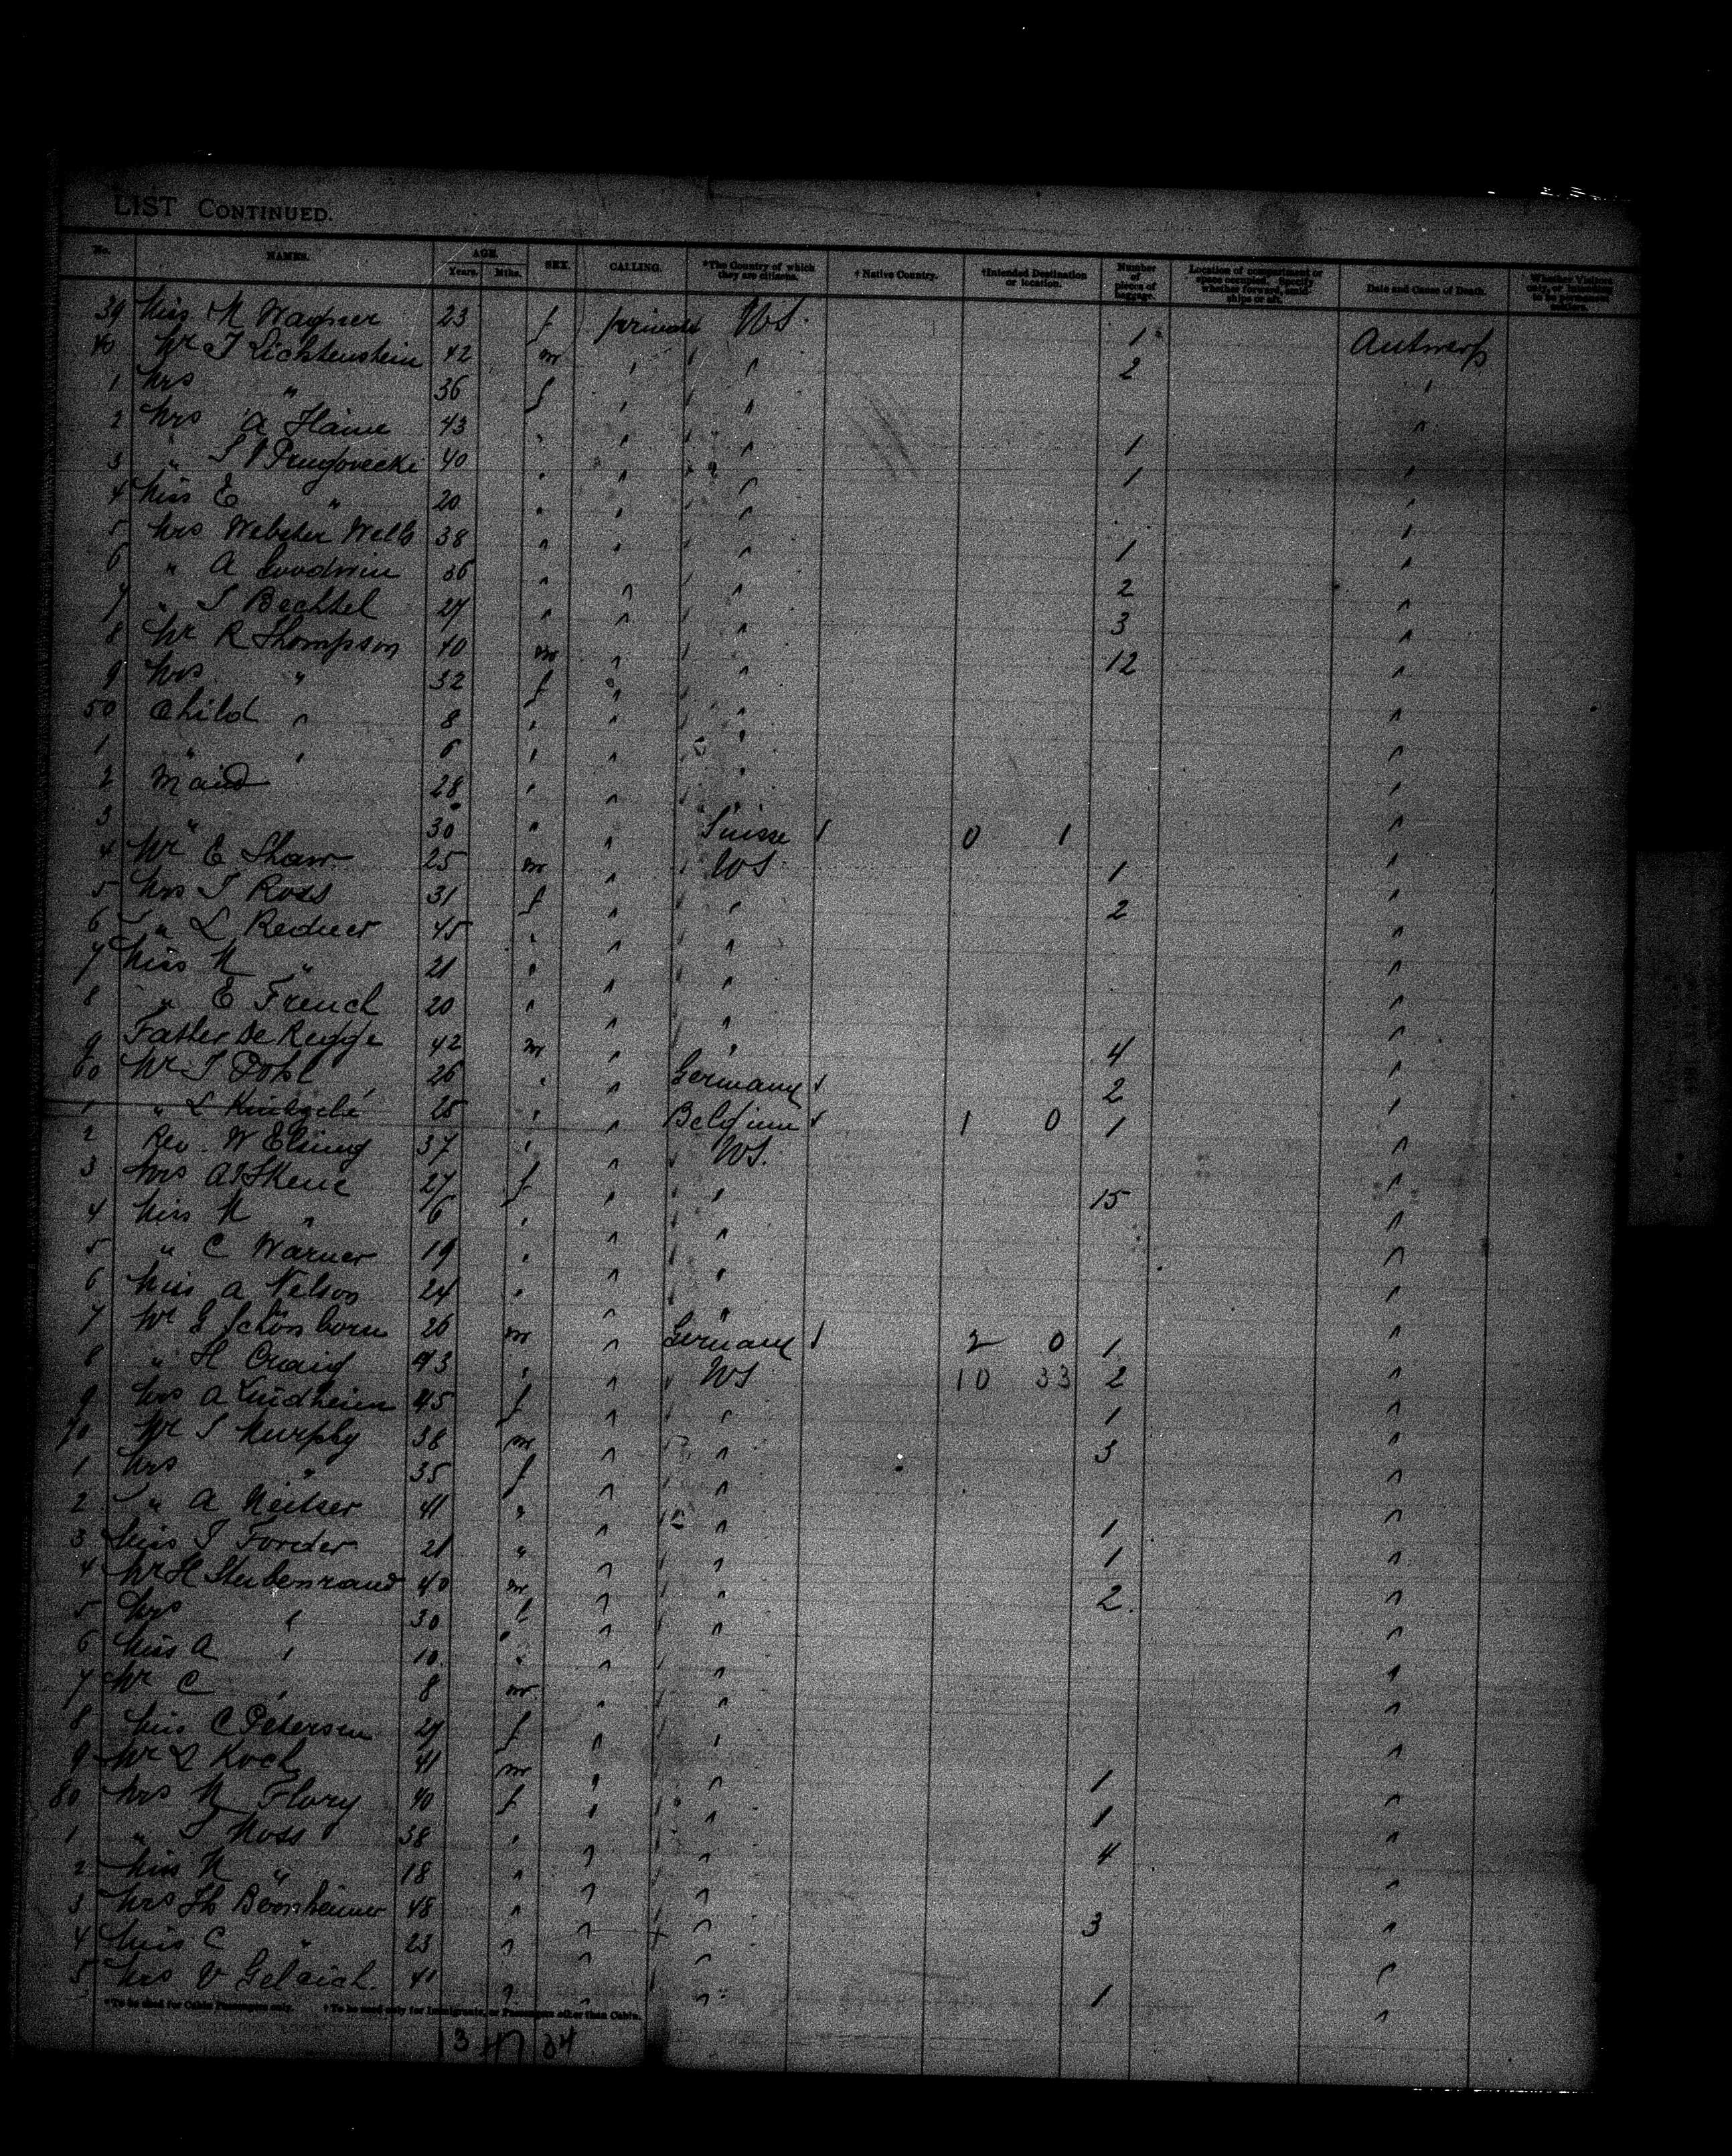 LIST CONTINUED.
No. NAMES. AGE. Years. Mths. SEX. CALLING. *The Country of which they are citizens. † Native Country. †Intended Destination or location. Number of pieces of baggage. Location of compartment or space occupied. Specify whether forward, amidships or aft. Date and Cause of Death.
39 Miss M Wagner 23 f private US. 1 Antwerp
40 Mr J Lichtenstein 42 m " " 2 "
1 Mrs " 36 f " " "
2 Mrs A Haine 43 " " " 1 "
3 " 40 " " " 1 "
4 Miss E " 20 " " " "
5 Mrs Webster Wells 38 " " " 1 "
6 " A Goodwin 36 " " " 2 "
7 " J Bechtel 27 " " " 3 "
8 Mr R Thompson 40 m " " 12 "
9 Mrs " 32 f " " "
50 Child " 8 " " " "
1 " " 6 " " " "
2 Maid 28 " " " "
3 " 30 " " Suisse 0 1 "
4 Mr E Shaw 25 m " US 1 "
5 Mrs J Ross 31 f " " 2 "
6 " L Redner 45 " " " "
7 Miss M " 21 " " " "
8 " E French 20 " " " "
9 Father De Rugge 42 m " " 4 "
60 Mr J Pohl 26 " " Germany 2 "
1 " L 25 " " Belgium 1 0 1 "
2 Rev. W Elsing 37 " " US. "
3 Mrs A J Skene 27 f " " 15 "
4 Miss M " 6 " " " "
5 " C Warner 19 " " " "
6 Miss A Nelson 24 " " " "
7 Mr G Schönborn 26 m " Germany 2 0 1 "
8 " H Craig 43 " " US 10 33 2 "
9 Mrs A Lindheim 45 f " " 1 "
70 Mr J Murphy 38 m " " 3 "
1 Mrs " 35 f " " "
2 " A Neitser 41 " " " 1 "
3 Miss J Forder 21 " " " 1 "
4 Mr H Stubenrauch 40 m " " 2 "
5 Mrs " 30 f " " "
6 Miss A " 10 " " " "
7 Mr C " 8 m " " "
8 Miss C Petersen 27 f " " "
9 Mr L Koch 41 m " " 1 "
80 Mrs M Flory 40 f " " 1 "
1 " J Moss 38 " " " 4 "
2 Miss M " 18 " " " "
3 Mrs Th 48 " " " 3 "
4 Miss C " 23 " " " "
5 Mrs V Gelcich 41 " " " 1 "
*To be used for Cabin Passengers only. † To be used only for Immigrants, or Passengers other than Cabin.